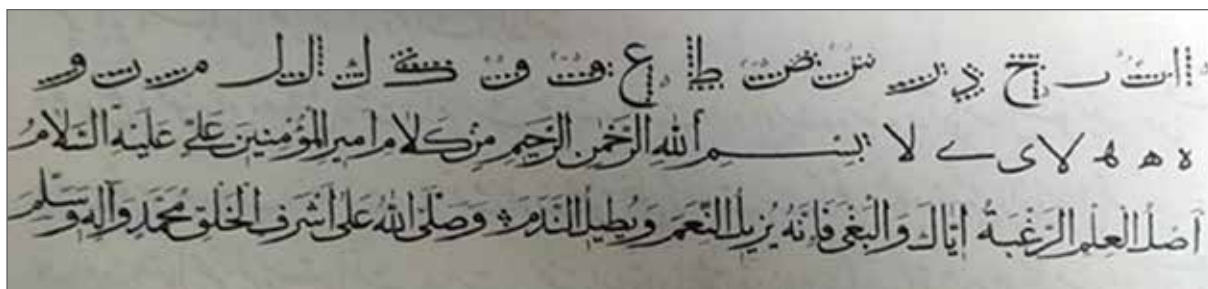 ا ا ب ر ج د ر س ض ط ع ف و ک ل ا ل ل م ن و
ه ه ه لا ی ے لا بِسْمِ أللهِ الرَّحْمٰنِ الرَّحِيمِ مِنْ كَلَامِ أَمِيرِ الْمُؤْمِنِينَ عَلِيٍّ عَلَيْهِ السَّلَامُ
أَصْلُ الْعِلْمِ الرَّغْبَةُ إِيَّاكَ وَالْبَغْيَ فَإِنَّهُ يُزِيلُ النِّعَمَ وَيُطِيلُ النَّدَمَ وَصَلَّى اللهُ عَلَى أَشْرَفِ الْخَلْقِ مُحَمَّدٍ وَآلِهِ وَسَلَّمَ